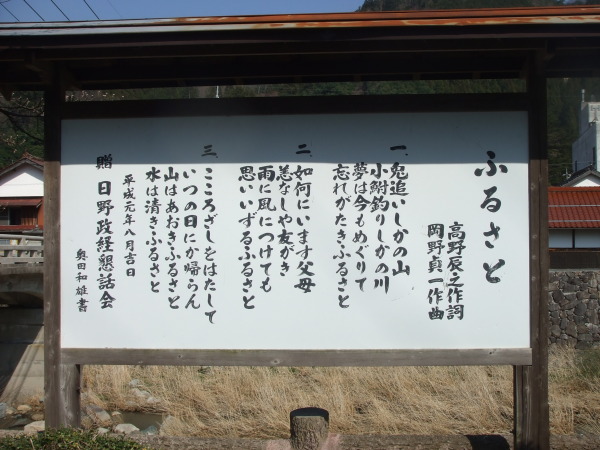 ふるさと
高野辰之作詞
岡野貞一作曲
一、兎追いしかの山
小鮒釣りしかの川
夢は今もめぐりて
忘れがたきふるさと
二、如何にいます父母
恙なしや友がき
雨に風につけても
思いいずるふるさと
三、こころざしをはたして
いつの日にか帰らん
山はあおきふるさと
水は清きふるさと
平成元年八月吉日
贈 日野政経懇話会
奥田和雄書